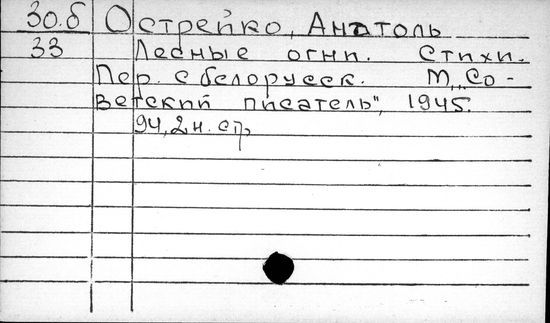 30.б Острейко, Анатоль
33 Лесные огни. Стихи.
Пер. с белорусск. М., "Со-
ветский писатель", 1945.
94, 2 н. стр.